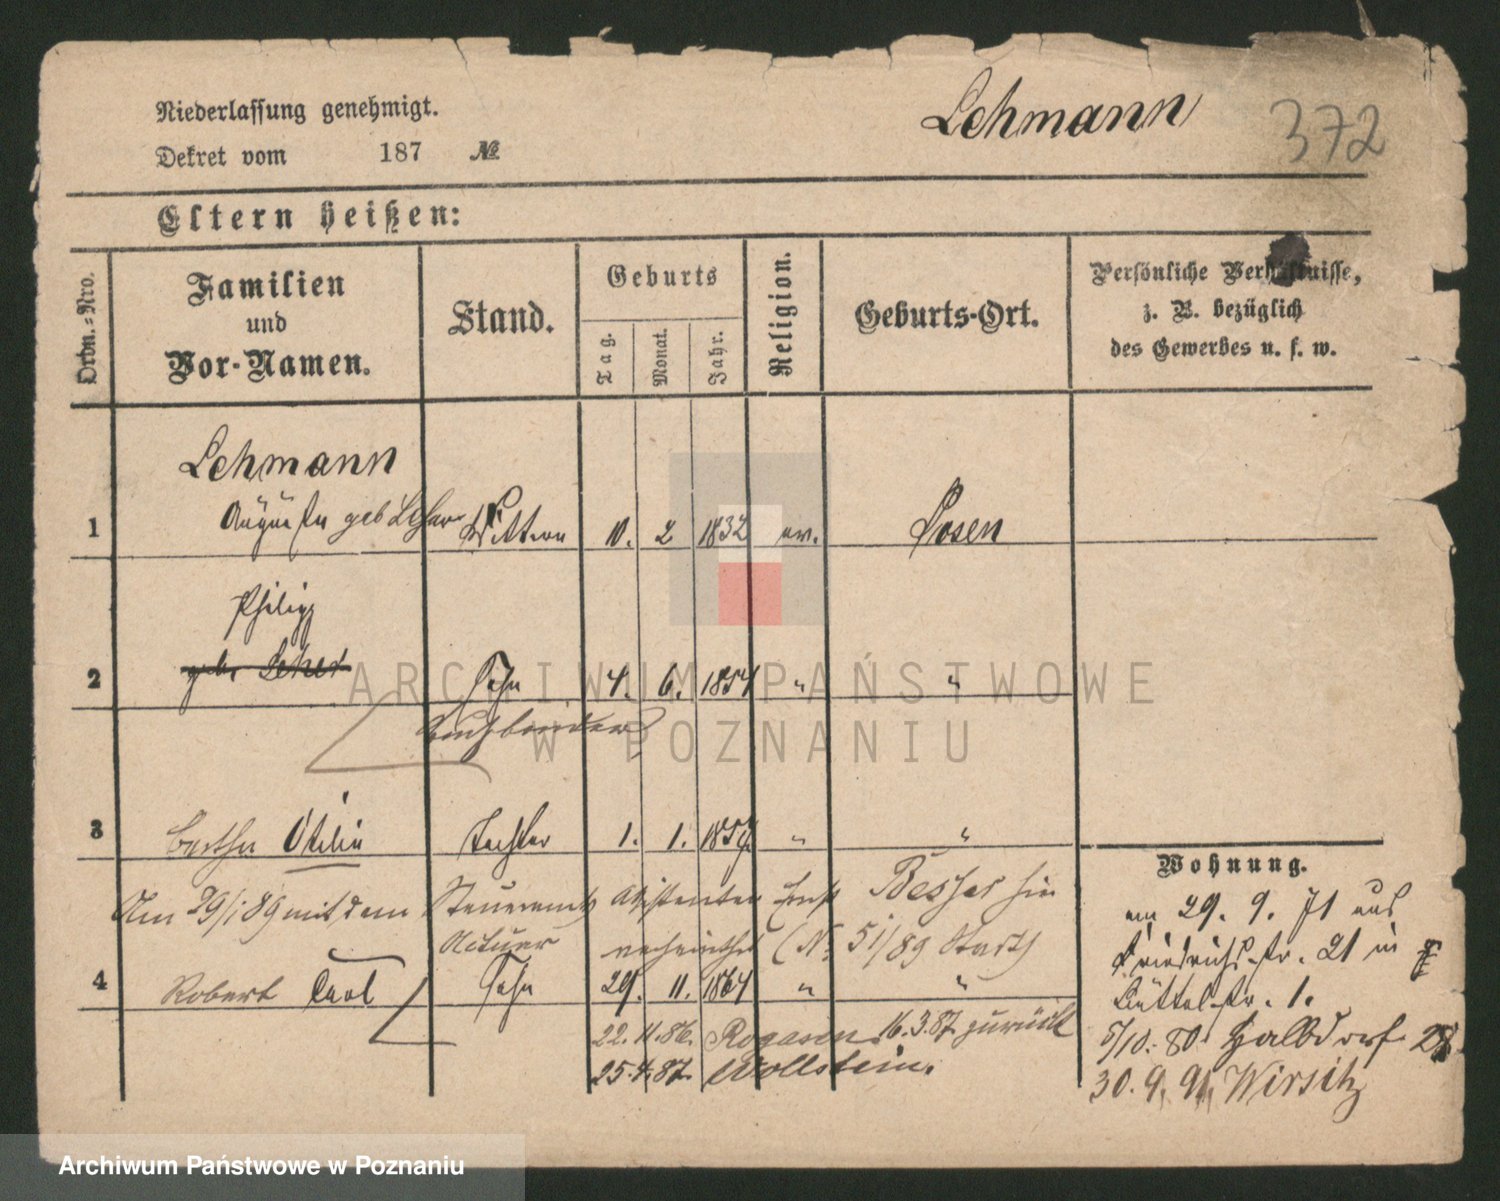 Niederlassung genehmigt.
Dekret vom 187 №
Lehmann
372
Eltern heißen:
Ordn.-Nro.
Familien
und
Vor-Namen.
Stand.
Geburts
Tag.
Monat.
Jahr.
Religion.
Geburts-Ort.
Persönliche Verhältnisse,
z. B. bezüglich
des Gewerbes u. s. w.
Lehmann
1 Auguste geb Wittwe 10. 2 1832 ev. Posen
Philipp
2 Sohn 4. 6. 1854 " "
Buchbinder
3 Bertha Otilie Tochter 1. 1. 1859 " "
Wohnung.
Am 29/1 89 mit dem Steueramts Assistenten Ernst Besser hie
Actuar verheirathet (N. 51/89 Start)
4 Robert Carl Sohn 29. 11. 1864 " "
22. 11. 86. Rogasen. 16. 3. 87. zurück
25. 4. 87. Wollstein.
am 29. 9. 71 aus
Friedrichs-str. 21 in
Büttel-str. 1.
5/10. 80. Halbdorf 28.
30. 9. 91, Wirsitz
ARCHIWUM PAŃSTWOWE
W POZNANIU
Archiwum Państwowe w Poznaniu